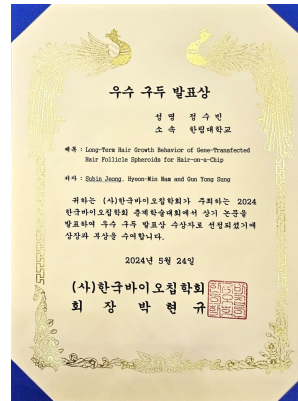 우수 구두 발표상
성 명 정 수 빈
소 속 한림대학교
제목 : Long-Term Hair Growth Behavior of Gene-Transfected
Hair Follicle Spheroids for Hair-on-a-Chip
저자 : Subin Jeong, Hyeon-Min Nam and Gun Yong Sung
귀하는 (사)한국바이오칩학회가 주최하는 2024
한국바이오칩학회 춘계학술대회에서 상기 논문을
발표하여 우수 구두 발표상 수상자로 선정되었기에
상장과 부상을 수여합니다.
2024년 5월 24일
(사)한국바이오칩학회
회 장 박 현 규